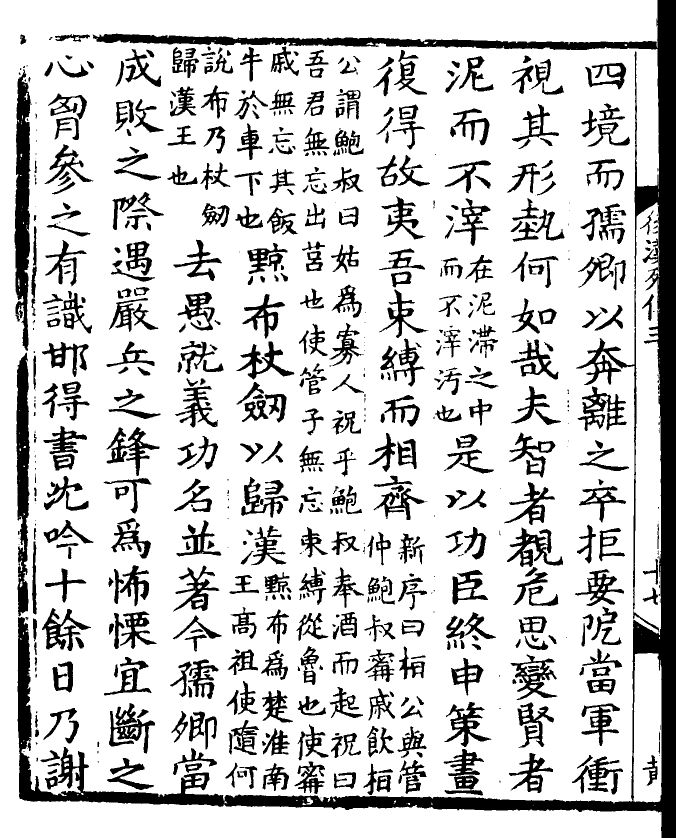 四境而孺卿以奔離之卒拒要阨當軍衝
視其形埶何如哉夫智者覩危思變賢者
泥而不滓在泥滯之中而不滓汚也是以功臣終申策畫
復得故夷吾束縛而相齊新序曰桓公與管仲鮑叔甯戚飲桓
公謂鮑叔曰姑爲寡人祝乎鮑叔奉酒而起祝曰
吾君無忘出莒也使管子無忘束縛從魯也使甯
戚無忘其飯牛於車下也黥布杖劒以歸漢黥布爲楚淮南王高祖使隨何
說布乃杖劒歸漢王也去愚就義功名並著今孺卿當
成敗之際遇嚴兵之鋒可爲怖慄宜斷之
心胷參之有識邯得書沈吟十餘日乃謝